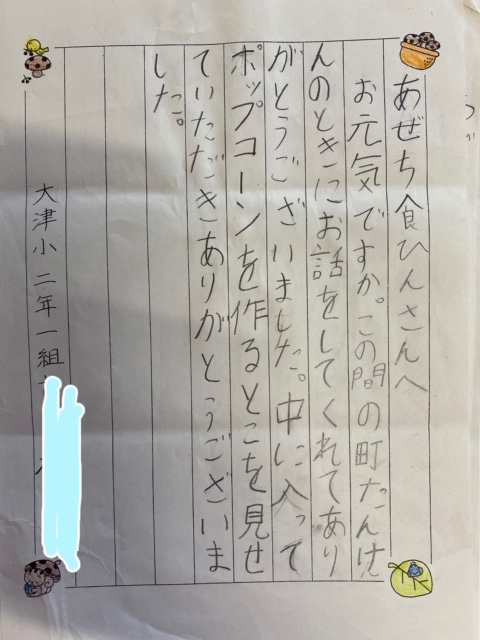 あぜち食ひんさんへ
お元気ですか。この間の町たんけ
んのときにお話をしてくれてあり
がとうございました。中に入って
ポップコーンを作るとこを見せ
ていただきありがとうございま
した。
大津小二年一組